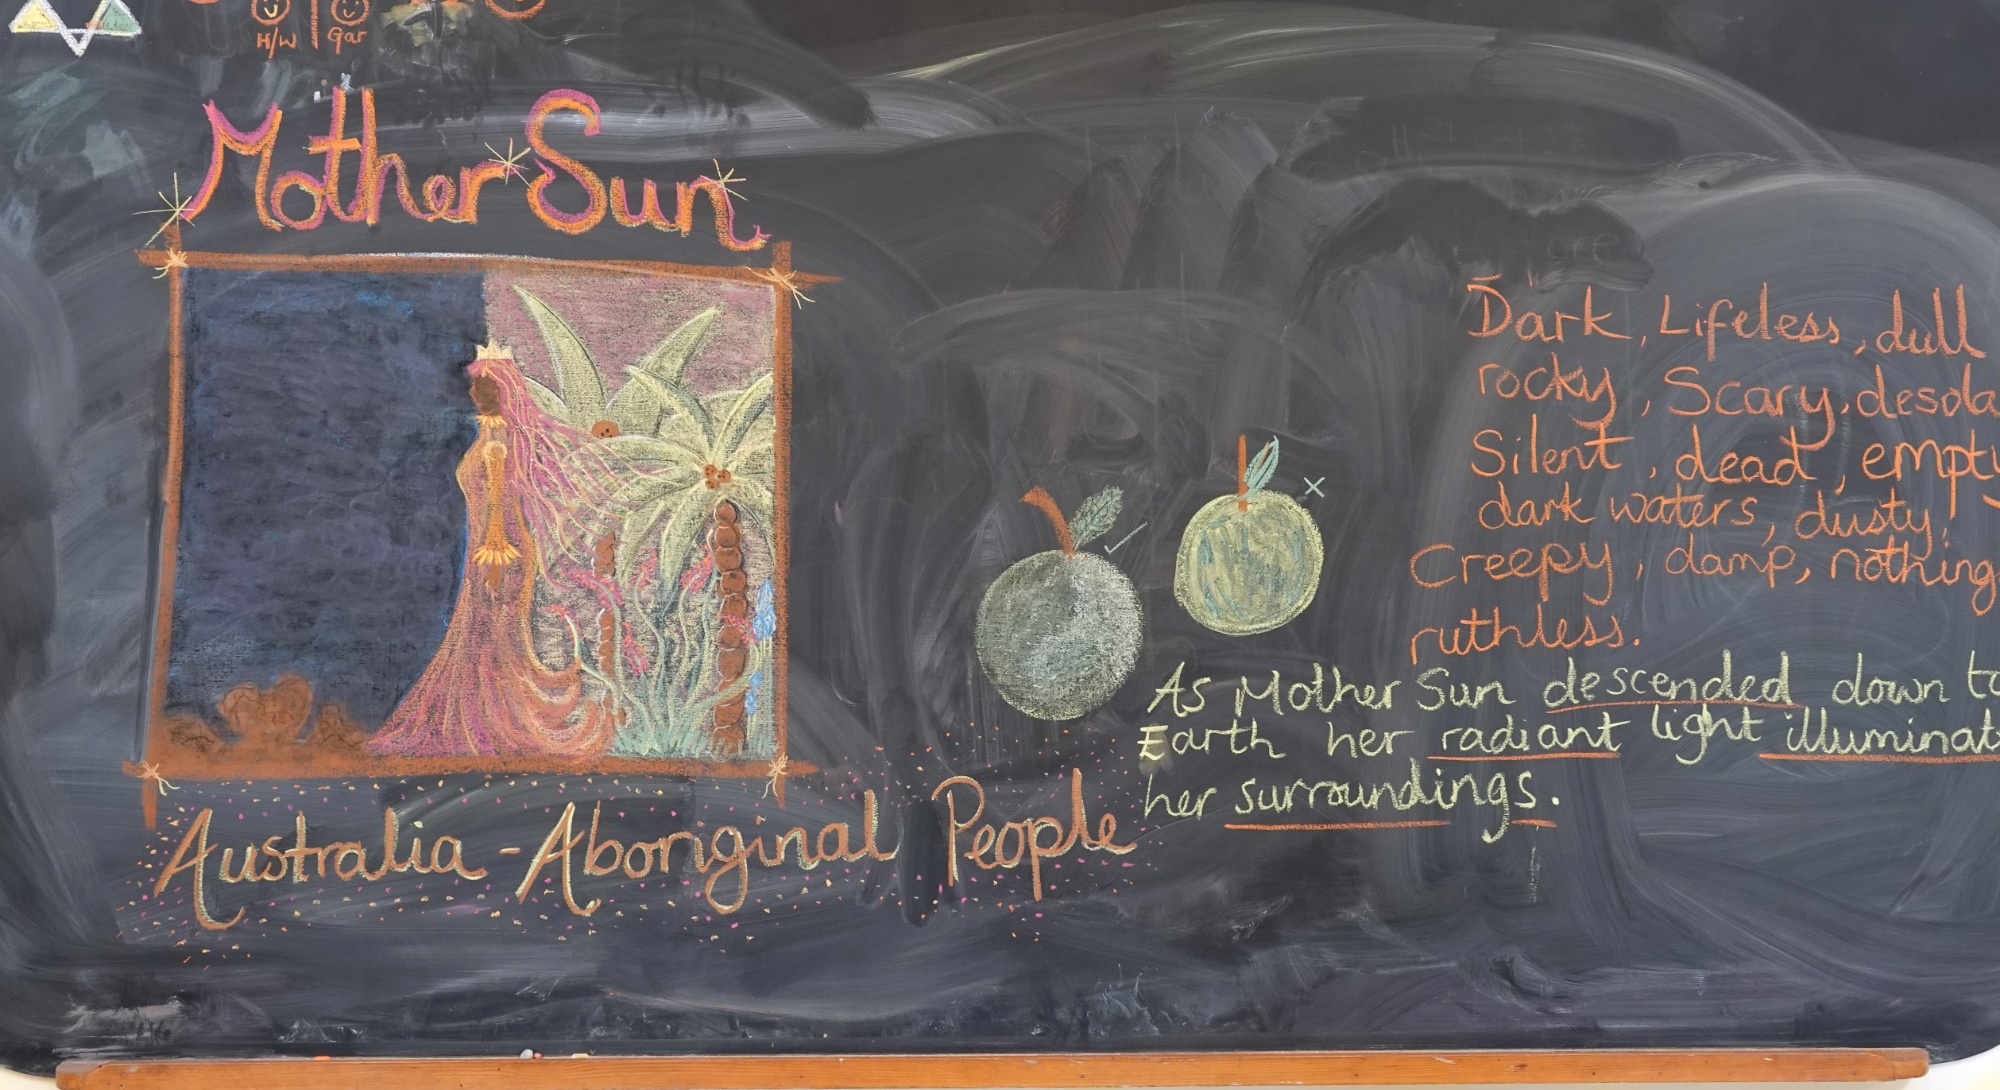 H/W gar
Mother Sun
Dark, Lifeless, dull
rocky, Scary, desola
Silent, dead, empty
dark waters, dusty,
Creepy, damp, nothing
ruthless.
As Mother Sun descended down to
Earth her radiant light illuminat
her surroundings.
Australia - Aboriginal People